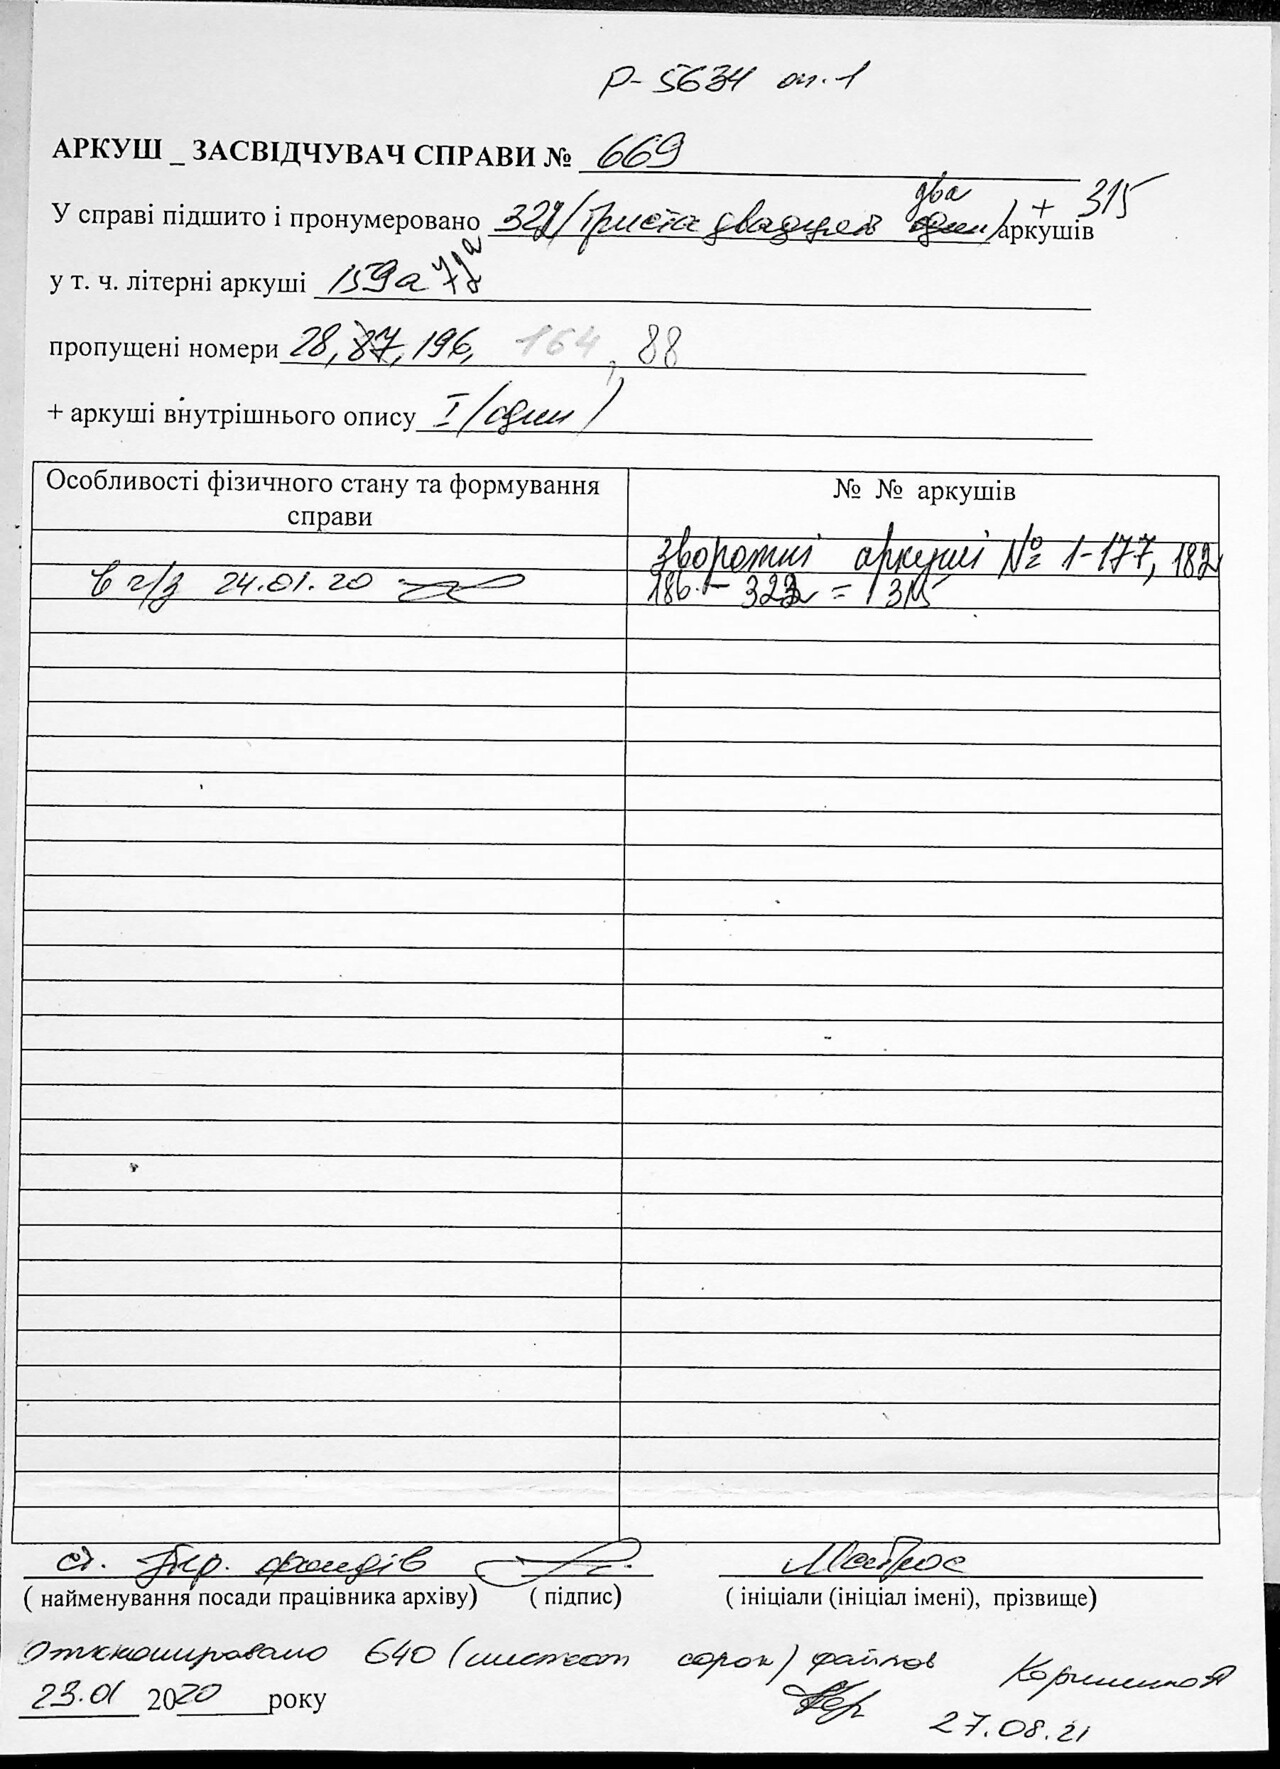 Р-5634 оп.1
АРКУШ _ ЗАСВІДЧУВАЧ СПРАВИ № 669
два + 315
У справі підшито і пронумеровано 322 /триста двадцять один/ аркушів
у т. ч. літерні аркуші 159а 72а
пропущені номери 28, 87, 196, 164, 88
+ аркуші внутрішнього опису I /один/
Особливості фізичного стану та формування справи
№ № аркушів
зворотні аркуші № 1-177, 182
В г/з 24.01.20
186 - 322 = 315
ст. фондів
Матрос
( найменування посади працівника архіву) ( підпис) ( ініціали (ініціал імені), прізвище)
Откопировано 640 (шестьсот сорок) файлов
23.01 2020 року
27.08.21